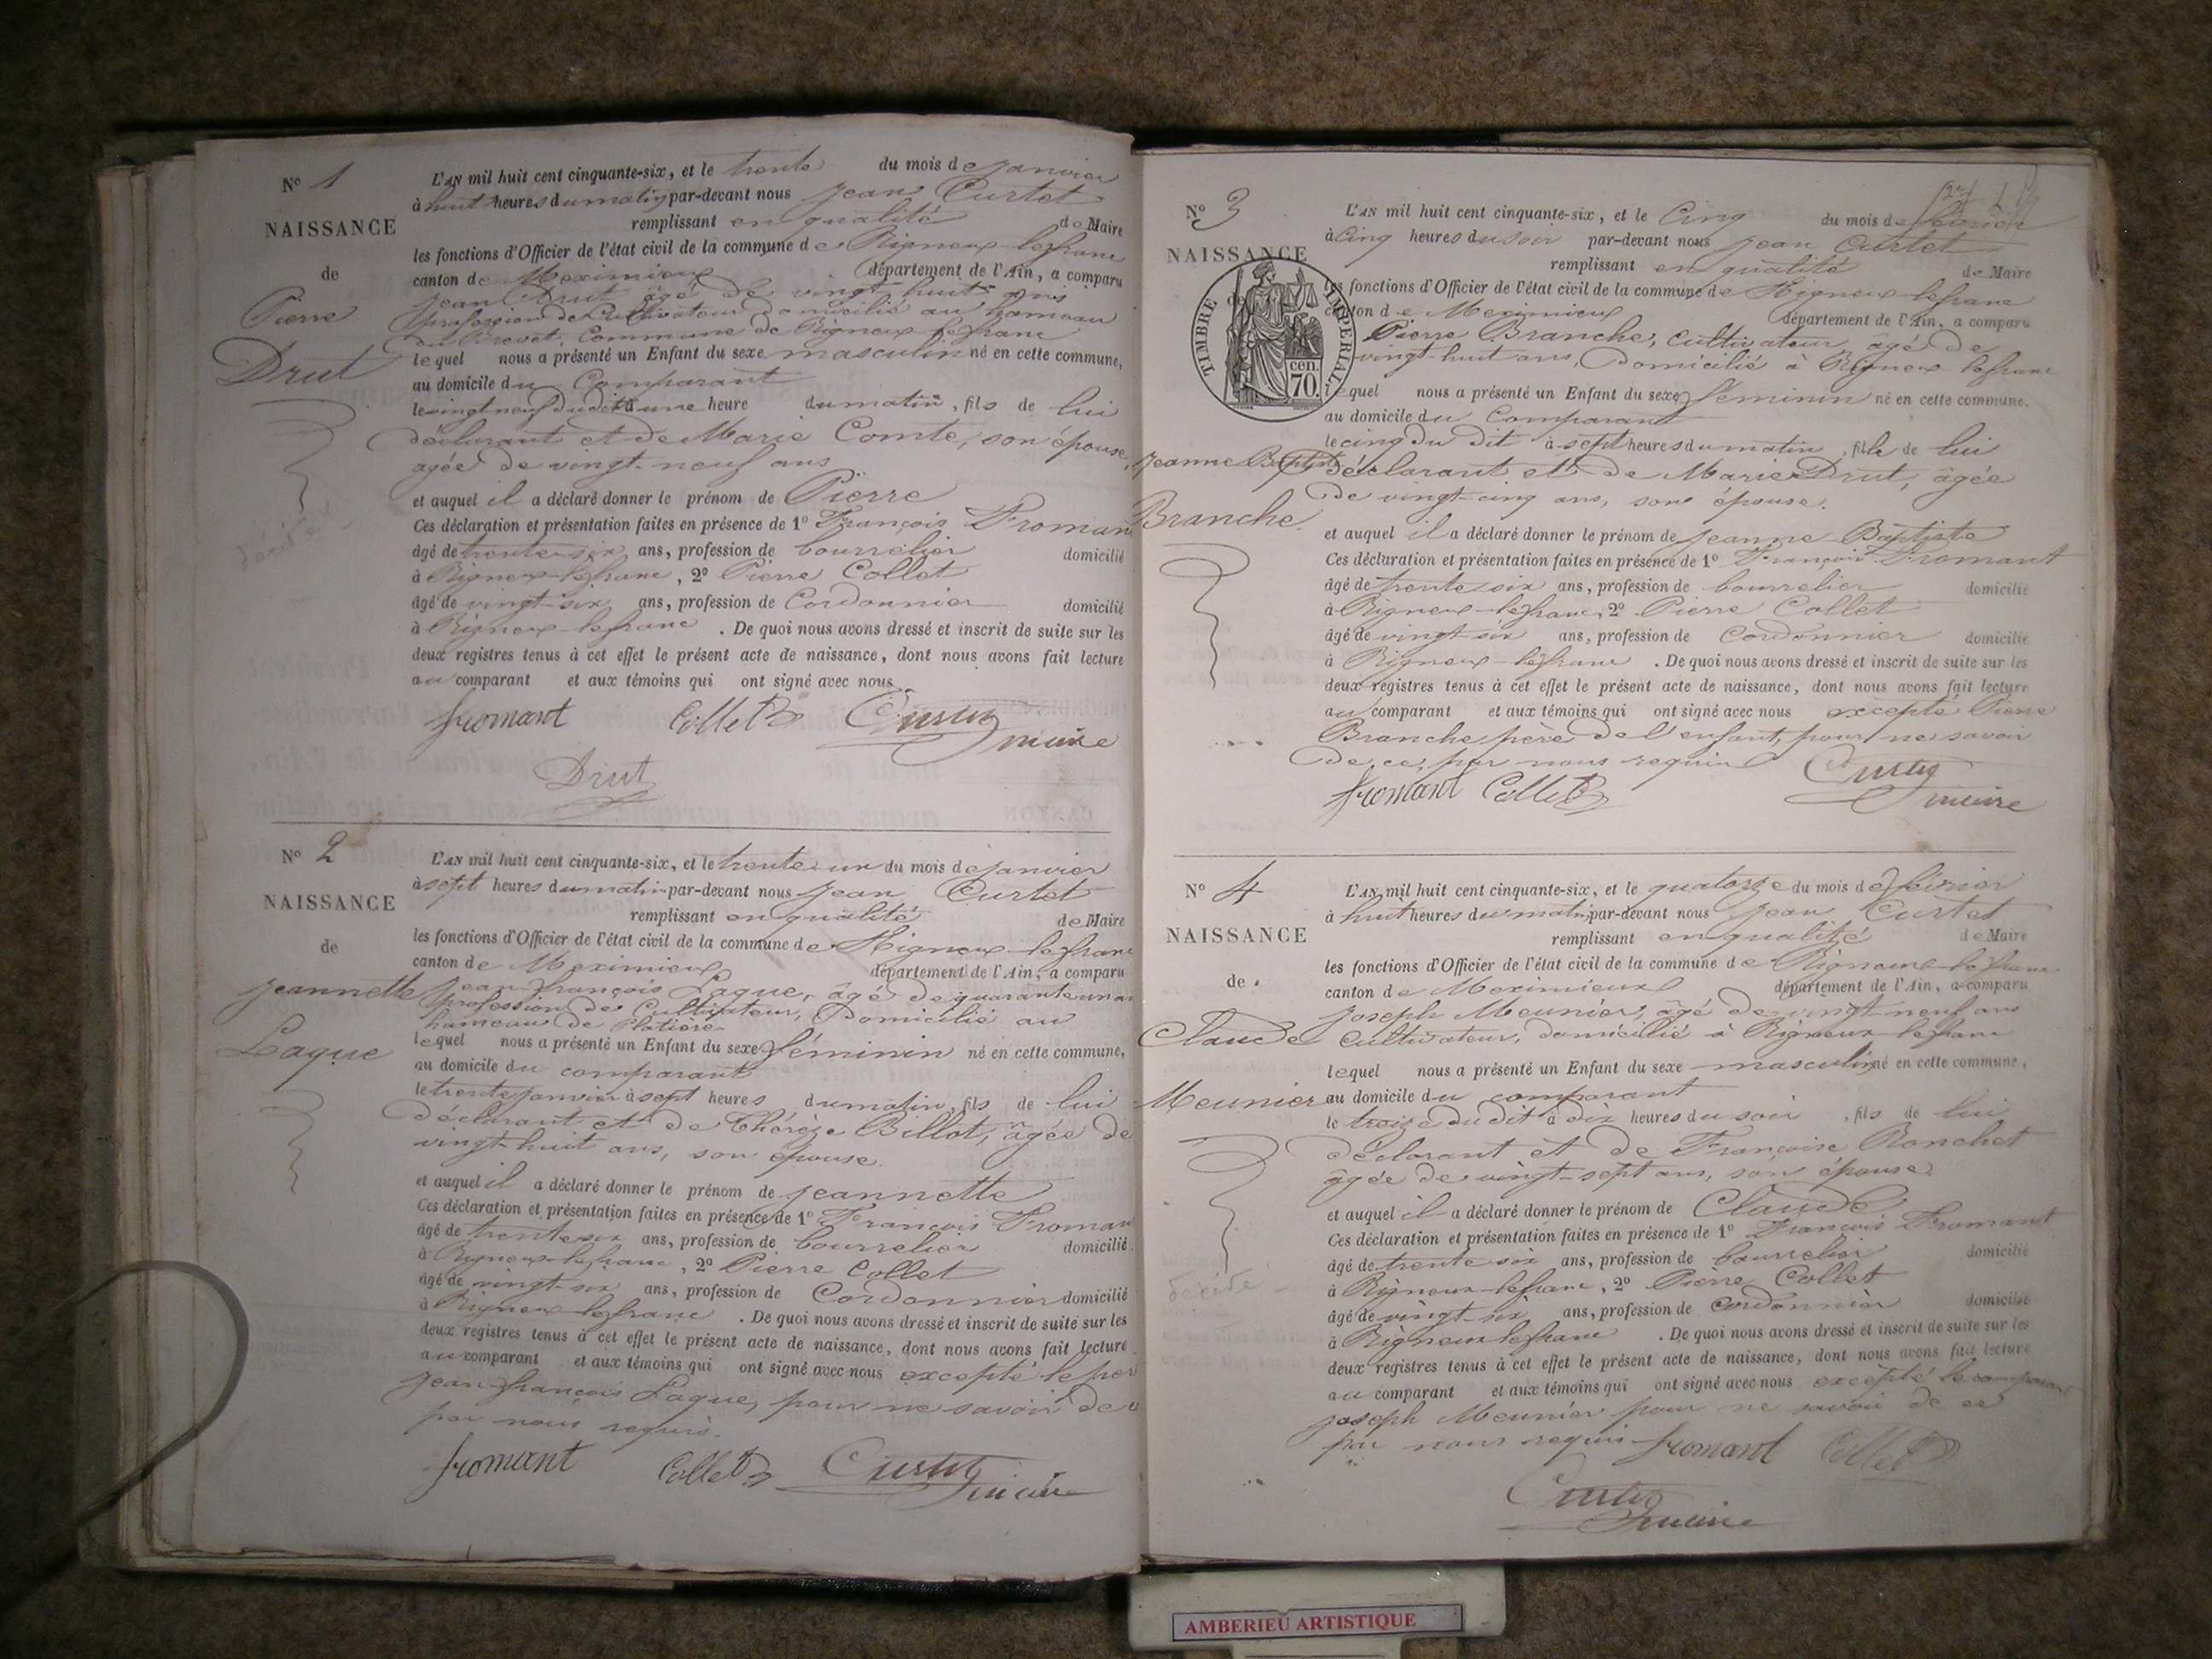 N° 1
NAISSANCE
de
Pierre
Drut
décédé
L'AN mil huit cent cinquante-six, et le trente du mois de janvier
à huit heures du matin par-devant nous Jean Curtet
remplissant en qualité de Maire
les fonctions d'Officier de l'état civil de la commune de Rigneux-lefranc
canton de Meximieux département de l'Ain, a comparu
Jean Drut âgé de vingt huit ans
profession de Cultivateur domicilié au hameau
du Crevet, Commune de Rigneux lefranc
lequel nous a présenté un Enfant du sexe masculin né en cette commune,
au domicile du Comparant
le vingt neuf dudit à une heure du matin, fils de lui
déclarant et de Marie Comte, son épouse,
agée de vingt-neuf ans
et auquel il a déclaré donner le prénom de Pierre
Ces déclaration et présentation faites en présence de 1° François Froman
âgé de trente-six ans, profession de bourrelier domicilié
à Rigneux-lefranc, 2° Pierre Collet
âgé de vingt-six ans, profession de Cordonnier domicilié
à Rigneux-lefranc. De quoi nous avons dressé et inscrit de suite sur les
deux registres tenus à cet effet le présent acte de naissance, dont nous avons fait lecture
au comparant et aux témoins qui ont signé avec nous
fromant Collet Curtet maire
Drut
N° 2
NAISSANCE
de
Jeannette
Laque
L'AN mil huit cent cinquante-six, et le trente-un du mois de janvier
à sept heures du matin par-devant nous Jean Curtet
remplissant en qualité de Maire
les fonctions d'Officier de l'état civil de la commune de Rigneux-lefranc
canton de Meximieux département de l'Ain, a comparu
Jean-françois Laque, âgé de quarante un an
profession de Cultivateur, Domicilié au
hameau de Platière
lequel nous a présenté un Enfant du sexe féminin né en cette commune,
au domicile du comparant
le trente janvier à sept heures du matin, fils de lui
déclarant et de Thérèze Billot, âgée de
vingt-huit ans, son épouse.
et auquel il a déclaré donner le prénom de Jeannette
Ces déclaration et présentation faites en présence de 1° François Froman
âgé de trente six ans, profession de bourrelier domicilié
à Rigneux-lefranc, 2° Pierre Collet
âgé de vingt-six ans, profession de Cordonnier domicilié
à Rigneux-lefranc. De quoi nous avons dressé et inscrit de suite sur les
deux registres tenus à cet effet le présent acte de naissance, dont nous avons fait lecture
au comparant et aux témoins qui ont signé avec nous excepté le per
Jean-françois Laque, pour ne savoir de c
par nous requis.
fromant Collet Curtet maire
N° 3
NAISSANCE
de
TIMBRE IMPERIAL
70 cen.
Jeanne Baptiste
Branche
L'AN mil huit cent cinquante-six, et le Cinq du mois de février
à Cinq heures du soir par-devant nous Jean Curtet
remplissant en qualité de Maire
les fonctions d'Officier de l'état civil de la commune de Rigneux-lefranc
canton de Meximieux département de l'Ain, a comparu
Pierre Branche, Cultivateur âgé de
vingt-huit ans, Domicilié à Rigneux lefranc
lequel nous a présenté un Enfant du sexe féminin né en cette commune,
au domicile du Comparant
le cinq du dit à sept heures du matin, fille de lui
déclarant et de Marie Drut, âgée
de vingt-cinq ans, son épouse.
et auquel il a déclaré donner le prénom de Jeanne Baptiste
Ces déclaration et présentation faites en présence de 1° François Fromant
âgé de trente six ans, profession de bourrelier domicilié
à Rigneux-lefranc, 2° Pierre Collet
âgé de vingt-six ans, profession de Cordonnier domicilié
à Rigneux-lefranc. De quoi nous avons dressé et inscrit de suite sur les
deux registres tenus à cet effet le présent acte de naissance, dont nous avons fait lecture
au comparant et aux témoins qui ont signé avec nous excepté Pierre
Branche père de l'enfant, pour ne savoir
de ce par nous requis
fromant Collet Curtet maire
N° 4
NAISSANCE
de
Claude
Meunier
décédé
L'AN mil huit cent cinquante-six, et le quatorze du mois de février
à huit heures du matin par-devant nous Jean Curtet
remplissant en qualité de Maire
les fonctions d'Officier de l'état civil de la commune de Rigneux-lefranc
canton de Meximieux département de l'Ain, a comparu
Joseph Meunier, âgé de vingt neuf ans
Cultivateur, domicilié à Rigneux-lefranc
lequel nous a présenté un Enfant du sexe masculin né en cette commune,
au domicile du comparant
le treize du dit à dix heures du soir, fils de lui
déclarant et de Françoise Ronchet
âgée de vingt-sept ans, son épouse
et auquel il a déclaré donner le prénom de Claude
Ces déclaration et présentation faites en présence de 1° François Fromant
âgé de trente six ans, profession de bourrelier domicilié
à Rigneux-lefranc, 2° Pierre Collet
âgé de vingt-six ans, profession de Cordonnier domicilié
à Rigneux lefranc. De quoi nous avons dressé et inscrit de suite sur les
deux registres tenus à cet effet le présent acte de naissance, dont nous avons fait lecture
au comparant et aux témoins qui ont signé avec nous excepté le comparant
Joseph Meunier pour ne savoir de ce
par nous requis fromant Collet
Curtet maire
AMBERIEU ARTISTIQUE